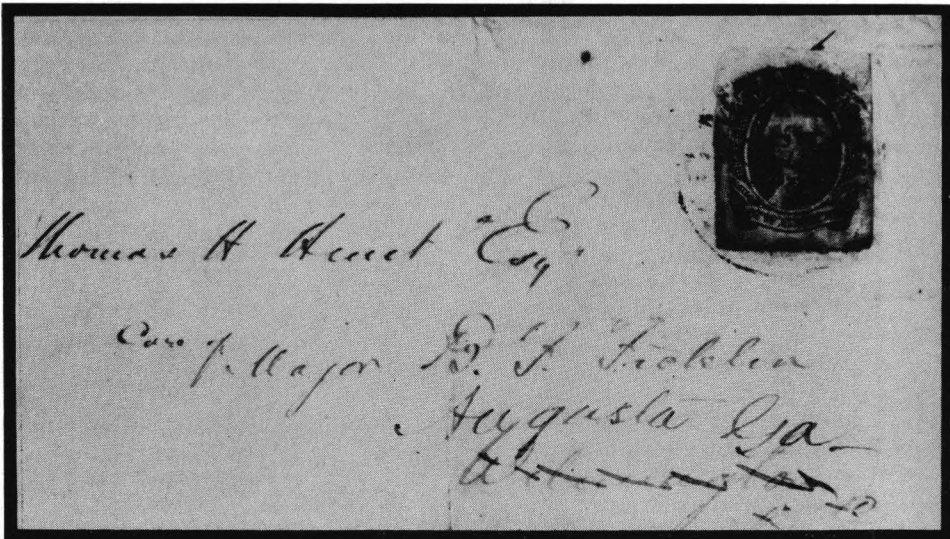 Thomas H Hunt "Esq"
Care of Major B. F. Ficklin
Augusta Ga
Wilmington